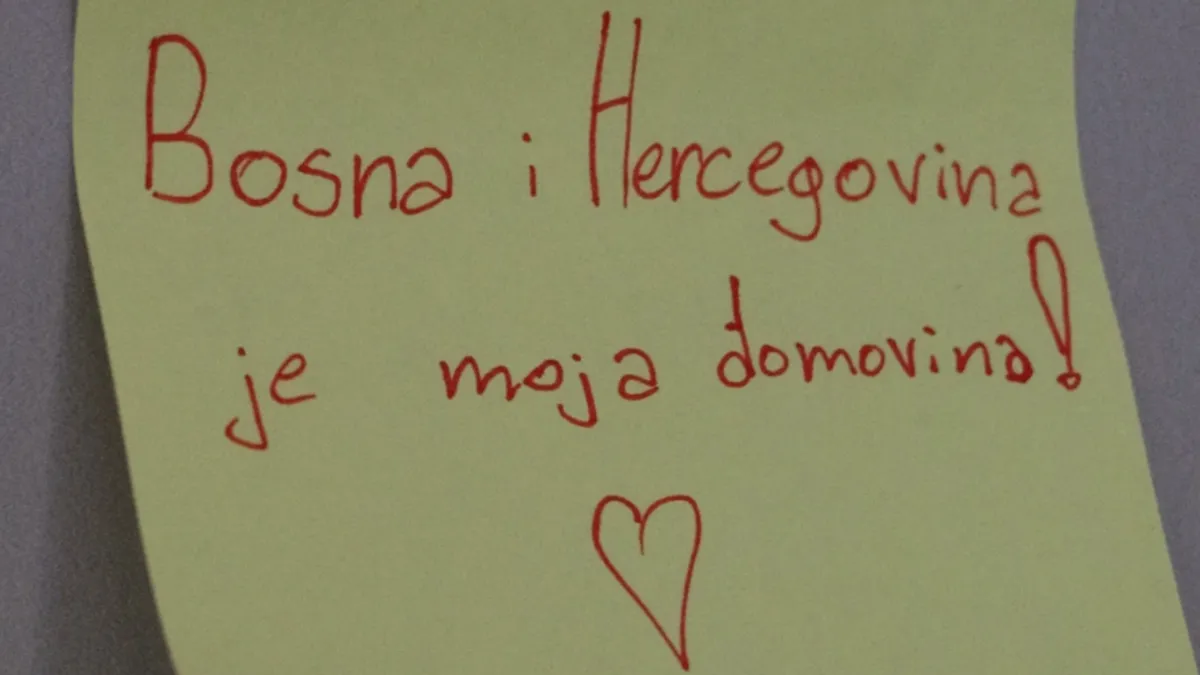 Bosna i Hercegovina
je moja domovina!